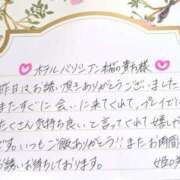 ホテルバリシアン本館の貴方様
昨日はお誘い頂きありがとうございました
またすぐに会いに来てくれて、プレイでも
たくさん気持ち良いと言ってくれて嬉しか
す。いつもご馳走ありがとう！またお時間
お誘いお待ちしております。